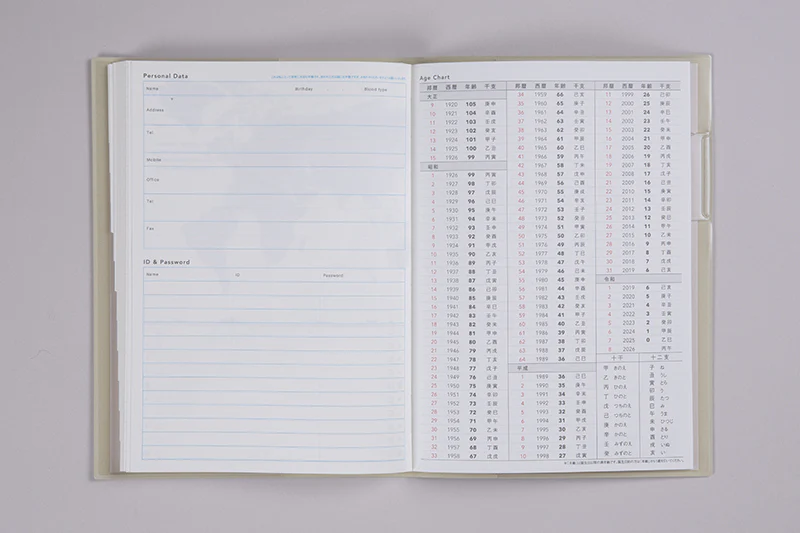 Personal Data
Name Birthday Blood type
Address
Tel.
Mobile
Office
Tel.
Fax
ID & Password
Name ID Password
Age Chart
邦暦 西暦 年齢 干支
大正
9 1920 105 庚申
10 1921 104 辛酉
11 1922 103 壬戌
12 1923 102 癸亥
13 1924 101 甲子
14 1925 100 乙丑
15 1926 99 丙寅
昭和
1 1926 99 丙寅
2 1927 98 丁卯
3 1928 97 戊辰
4 1929 96 己巳
5 1930 95 庚午
6 1931 94 辛未
7 1932 93 壬申
8 1933 92 癸酉
9 1934 91 甲戌
10 1935 90 乙亥
11 1936 89 丙子
12 1937 88 丁丑
13 1938 87 戊寅
14 1939 86 己卯
15 1940 85 庚辰
16 1941 84 辛巳
17 1942 83 壬午
18 1943 82 癸未
19 1944 81 甲申
20 1945 80 乙酉
21 1946 79 丙戌
22 1947 78 丁亥
23 1948 77 戊子
24 1949 76 己丑
25 1950 75 庚寅
26 1951 74 辛卯
27 1952 73 壬辰
28 1953 72 癸巳
29 1954 71 甲午
30 1955 70 乙未
31 1956 69 丙申
32 1957 68 丁酉
33 1958 67 戊戌
邦暦 西暦 年齢 干支
34 1959 66 己亥
35 1960 65 庚子
36 1961 64 辛丑
37 1962 63 壬寅
38 1963 62 癸卯
39 1964 61 甲辰
40 1965 60 乙巳
41 1966 59 丙午
42 1967 58 丁未
43 1968 57 戊申
44 1969 56 己酉
45 1970 55 庚戌
46 1971 54 辛亥
47 1972 53 壬子
48 1973 52 癸丑
49 1974 51 甲寅
50 1975 50 乙卯
51 1976 49 丙辰
52 1977 48 丁巳
53 1978 47 戊午
54 1979 46 己未
55 1980 45 庚申
56 1981 44 辛酉
57 1982 43 壬戌
58 1983 42 癸亥
59 1984 41 甲子
60 1985 40 乙丑
61 1986 39 丙寅
62 1987 38 丁卯
63 1988 37 戊辰
64 1989 36 己巳
平成
1 1989 36 己巳
2 1990 35 庚午
3 1991 34 辛未
4 1992 33 壬申
5 1993 32 癸酉
6 1994 31 甲戌
7 1995 30 乙亥
8 1996 29 丙子
9 1997 28 丁丑
10 1998 27 戊寅
邦暦 西暦 年齢 干支
11 1999 26 己卯
12 2000 25 庚辰
13 2001 24 辛巳
14 2002 23 壬午
15 2003 22 癸未
16 2004 21 甲申
17 2005 20 乙酉
18 2006 19 丙戌
19 2007 18 丁亥
20 2008 17 戊子
21 2009 16 己丑
22 2010 15 庚寅
23 2011 14 辛卯
24 2012 13 壬辰
25 2013 12 癸巳
26 2014 11 甲午
27 2015 10 乙未
28 2016 9 丙申
29 2017 8 丁酉
30 2018 7 戊戌
31 2019 6 己亥
令和
1 2019 6 己亥
2 2020 5 庚子
3 2021 4 辛丑
4 2022 3 壬寅
5 2023 2 癸卯
6 2024 1 甲辰
7 2025 0 乙巳
8 2026 丙午
十干 十二支
甲 きのえ 子 ね
乙 きのと 丑 うし
丙 ひのえ 寅 とら
丁 ひのと 卯 う
戊 つちのえ 辰 たつ
己 つちのと 巳 み
庚 かのえ 午 うま
辛 かのと 未 ひつじ
壬 みずのえ 申 さる
癸 みずのと 酉 とり
戌 いぬ
亥 い